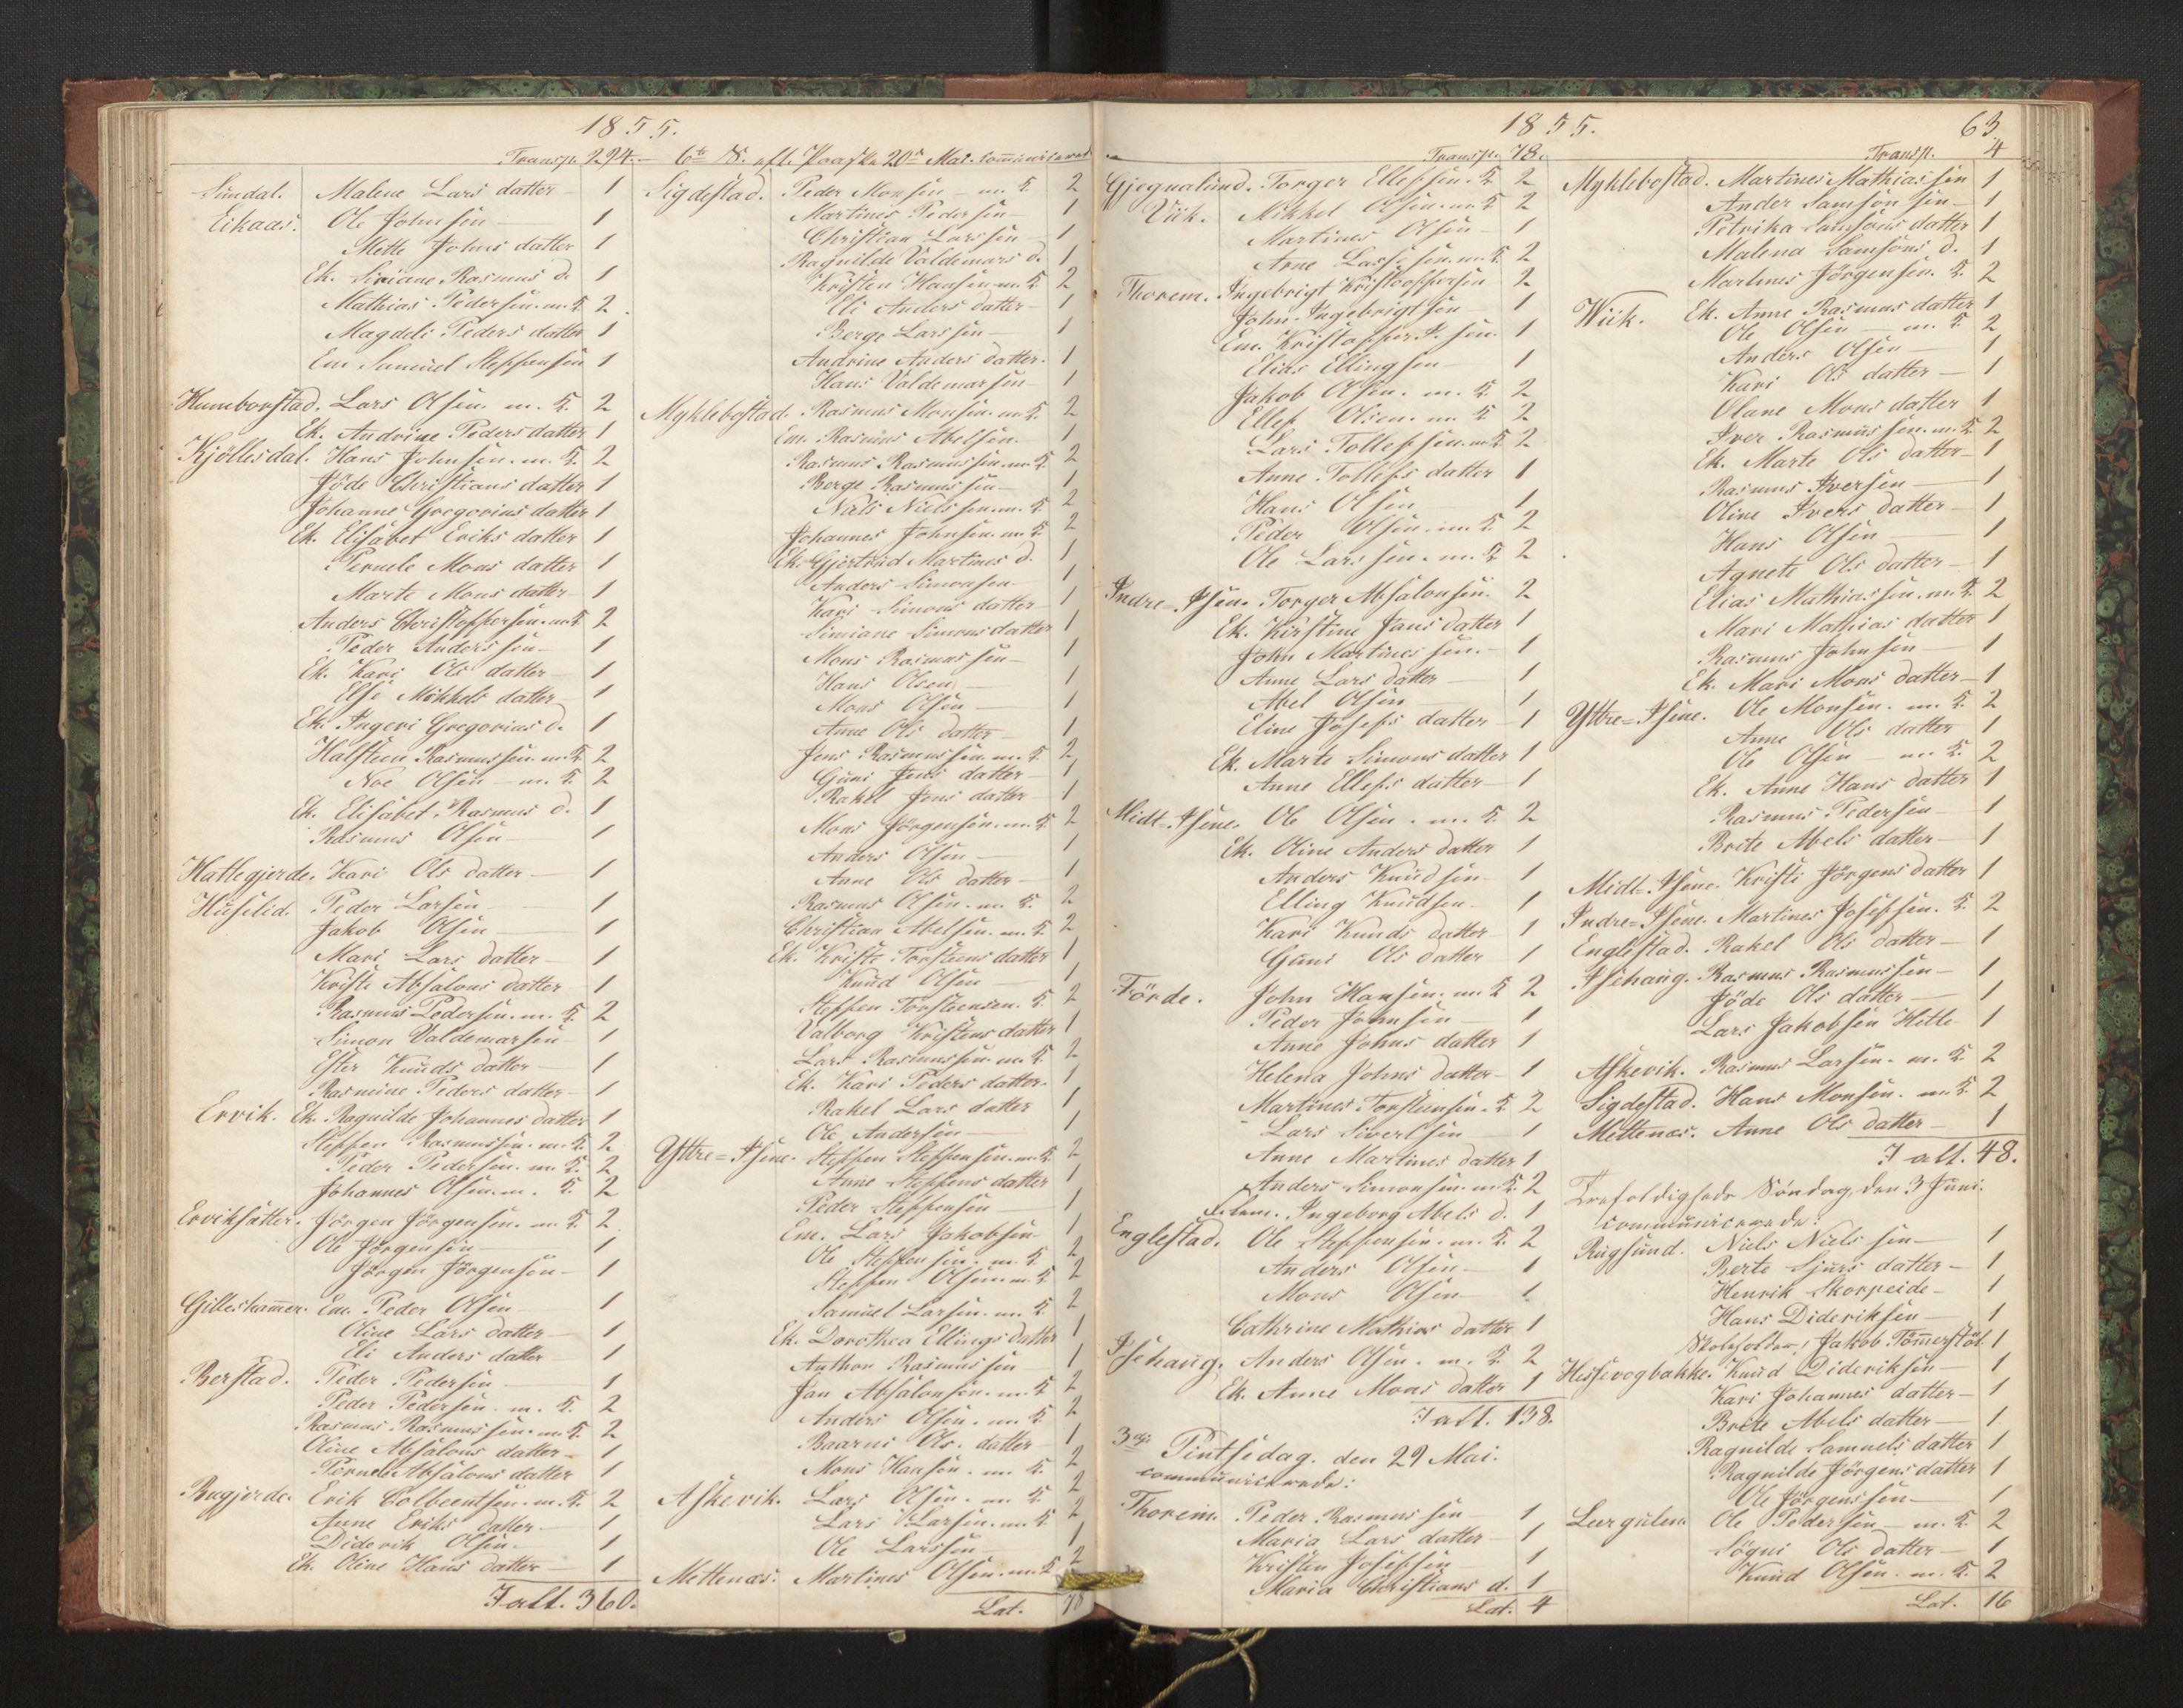 1855.
Transp. 294.
Sundal. Malene Lars datter 1
Eikaas. Ole Johnsen 1
Mette Johns datter 1
Ek. Siriane Rasmus d. 1
Mathias Pedersen m. K. 2
Magdeli Peders datter 1
Em. Samuel Steffensen 1
Humborstad. Lars Olsen m. K. 2
Ek. Andrine Peders datter 1
Kjöllesdal. Hans Johnsen m. K. 2
Jöde Christians datter 1
Johanne Gregorius datter 1
Ek. Elisabet Eriks datter 1
Pernele Mons datter 1
Marte Mons datter 1
Anders Christoffersen m K 2
Peder Anderssen 1
Ek. Kari Ols datter 1
Else Mikkels datter 1
Ek. Ingeri Gregorius d. 1
Halsteen Rasmussen m. K 2
Noe Olsen m. K. 2
Ek. Elisabet Rasmus d. 1
Rasmus Olsen 1
Hattegjerde. Kari Ols datter 1
Huselid. Peder Larsen 1
Jakob Olsen 1
Mari Lars datter 1
Kristi Absalons datter 1
Rasmus Pedersen m. K. 2
Simon Valdemarsen 1
Ester Knuds datter 1
Rasmine Peders datter 1
Ervik. Ek. Ragnilde Johannes datter 1
Steffen Rasmussen m. K. 2
Peder Pedersen m. K. 2
Johannes Olsen m. K. 2
Erviksætter. Jörgen Jörgensen m. K. 2
Ole Jörgensen 1
Jörgen Jörgensen 1
Gilleshammer. Em. Peder Olsen 1
Oline Lars datter 1
Eli Anders datter 1
Berstad. Peder Pedersen 1
Peder Pedersen m. K. 2
Rasmus Rasmussen m K 2
Oline Absalons datter 1
Pernele Absalons datter 1
Bugjerde. Erik Colbeentsen m. K. 2
Anne Eriks datter 1
Diderik Olsen 1
Ek. Oline Hans datter 1
I alt. 360.
6te S. eft. Paaske 20de Mai. communicerede
Sigdestad. Peder Monsen m. K 2
Martines Pedersen 1
Christian Larssen 1
Ragnilde Valdemars d. 1
Kristen Hansen m. K 2
Eli Anders datter 1
Berge Larssen 1
Andrine Anders datter 1
Hans Valdemarsen 1
Myklebostad. Rasmus Monsen m K. 2
Em. Rasmus Abelsen 1
Rasmus Rasmussen m K. 2
Berge Rasmussen 1
Niels Nielssen m. K. 2
Johannes Johnsen m K 2
Ek. Gjertrud Martines d. 1
Anders Simonsen 1
Kari Simons datter 1
Simiane Simons datter 1
Mons Rasmussen 1
Hans Olsen 1
Mons Olsen 1
Anne Ols datter 1
Jens Rasmussen m. K 2
Guni Jens datter 1
Rakel Jens datter 1
Mons Jörgensen m. K. 2
Anders Olsen 1
Anne Ols datter 1
Rasmus Olsen m. K. 2
Christian Abelsen m. K. 2
Ek. Kristi Torsteens datter 1
Knud Olsen 1
Steffen Torsteensen K 2
Valborg Kristens datter 1
Lars Rasmussen m. K. 2
Ek. Kari Peders datter 1
Rakel Lars datter 1
Ole Andersen 1
Yttre=Isene. Steffen Steffensen m. K. 2
Anne Steffens datter 1
Peder Steffensen 1
Em. Lars Jakobsen 1
Ole Steffensen m. K 2
Steffen Olsen m. K 2
Samuel Larsen m. K. 2
Ek. Dorothea Ellings datter 1
Anthon Rasmussen 1
Jan Absalonsen m. K 2
Anders Olsen m. K. 2
Baarni Ols. datter 1
Mons Hansen m. K. 2
Askevik. Lars Olsen m K. 2
Lars Larsen m. K. 2
Ole Larssen 1
Mettenæs. Martines Olsen m. K 2
Lat. 78
1855.
63
Transp. 78.
Gjegnalund. Torger Ellefsen K 2
Viik. Mikkel Olsen m. K 2
Martines Olsen 1
Arne Larssen m. K. 2
Thorem. Ingebrigt Kristoffersen 2
John Ingebrigtsen 1
Em. Kristoffer P. sen 1
Elias Ellingsen 1
Jakob Olsen m. K. 2
Ellef Olsen m. K. 2
Lars Tollefsen m K 2
Anne Tollefs datter 1
Hans Olsen 1
Peder Olsen m K. 2
Ole Larssen m. K. 2
Indre=Isene. Torger Absalonsen 2
Ek. Kirstine Jans datter 1
John Martinessen 1
Anne Lars datter 1
Abel Olsen 1
Eline Josefs datter 1
Ek. Marte Simons datter 1
Anne Ellefs datter 1
Midt=Isene. Ole Olsen m. K. 2
Ek. Oline Anders datter 1
Anders Knudsen 1
Elling Knudsen 1
Kari Knuds datter 1
Guni Ols datter 1
Förde. John Hansen m. K 2
Peder Johnsen 1
Anne Johns datter 1
Helena Johns datter 1
Martines Torsteensen K 2
Lars Sivertsen 1
Anne Martines datter 1
Anders Simonsen m K. 2
Ingeborg Abels d. 1
Englestad. Ole Steffensen m. K. 2
Anders Olsen 1
Mons Olsen 1
Cathrine Mathias datter 1
Isehaug. Anders Olsen m. K. 2
Ek. Anne Mons datter 1
I alt. 138.
3die Pintsedag. den 29 Mai.
communicerede:
Thorem. Peder Rasmussen 1
Maria Lars datter 1
Kristen Josefsen 1
Maria Christians d. 1
Lat. 4
Transp. 4
Myklebostad. Martines Mathiassen 1
Ander Samsonsen 1
Petrika Samsons datter 1
Malena Samsons d. 1
Martines Jörgensen K. 2
Wiik. Ek. Anne Rasmus datter 1
Ole Olsen m. K. 2
Anders Olsen 1
Kari Ols datter 1
Olane Mons datter 1
Iver Rasmussen m. K. 2
Ek. Marte Ols datter 1
Rasmus Iversen 1
Oline Ivers datter 1
Hans Olsen 1
Agnete Ols datter 1
Elias Mathiassen m. K. 2
Mari Mathias datter 1
Rasmus Johnsen 1
Ek. Mari Mons datter 1
Yttre=Isene. Ole Monsen m. K. 2
Anne Ols datter 1
Ole Olsen m. K. 2
Ek. Anne Hans datter 1
Rasmus Pedersen 1
Brite Abels datter 1
Midt=Isene. Kristi Jörgens datter 1
Indre=Isene. Martines Josefsen K. 2
Englestad. Rakel Ols datter 1
Isehaug. Rasmus Rasmussen 1
Jöde Ols datter 1
Lars Jakobsen Hitle 1
Askevik. Rasmus Larsen m. K. 2
Sigdestad. Hans Monsen m. K 2
Mettenæs. Anne Ols datter 1
I alt. 48.
Trefoldigheds Söndag, den 3 Juni.
communicerede:
Rugsund. Niels Nielssen 1
Berte Sjurs datter 1
Henrik Skorpeide 1
Hans Dideriksen 1
Skoleholder, Jakob Tömmerstöl 1
Hessevogbakke. Knud Dideriksen 1
Kari Johannes datter 1
Brite Abels datter 1
Ragnilde Samuels datter 1
Ragnilde Jörgens datter 1
Ole Jörgenssen 1
Lurgulen. Ole Pedersen m. K. 2
Sögni Ols datter 1
Knud Olsen m. K. 2
Lat. 16